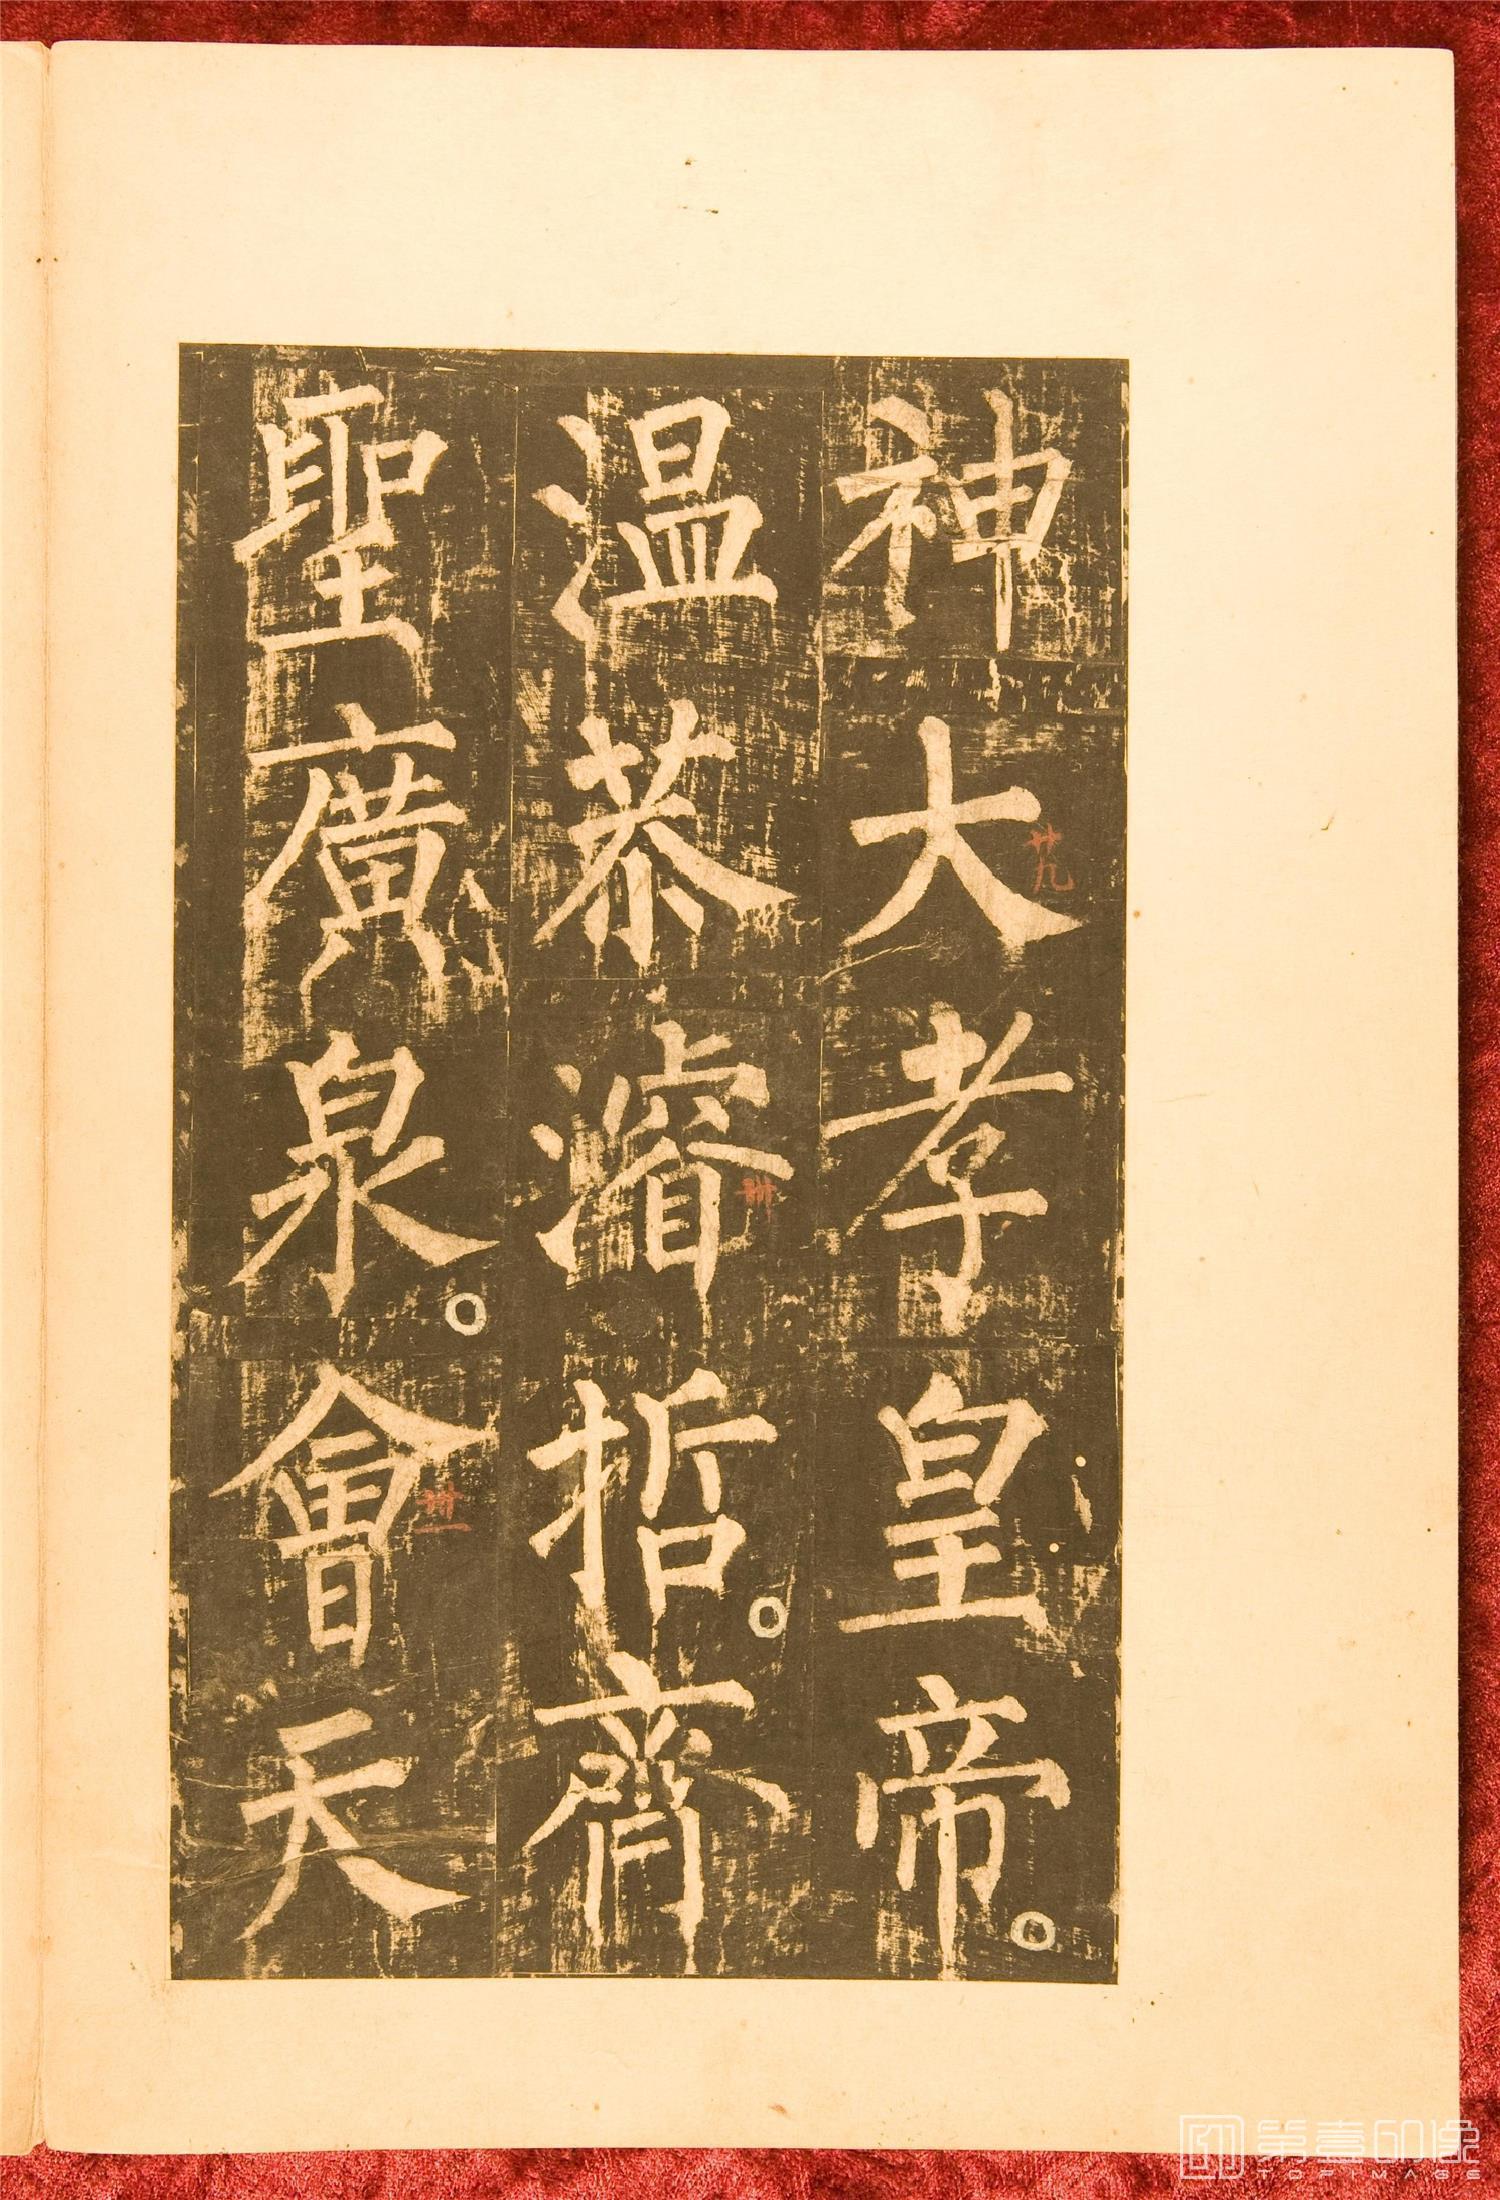 神大孝皇帝。
廿九
温恭濬哲。齊
卅
聖廣泉。會天
卅一
第壹印像
TOPIMAGE